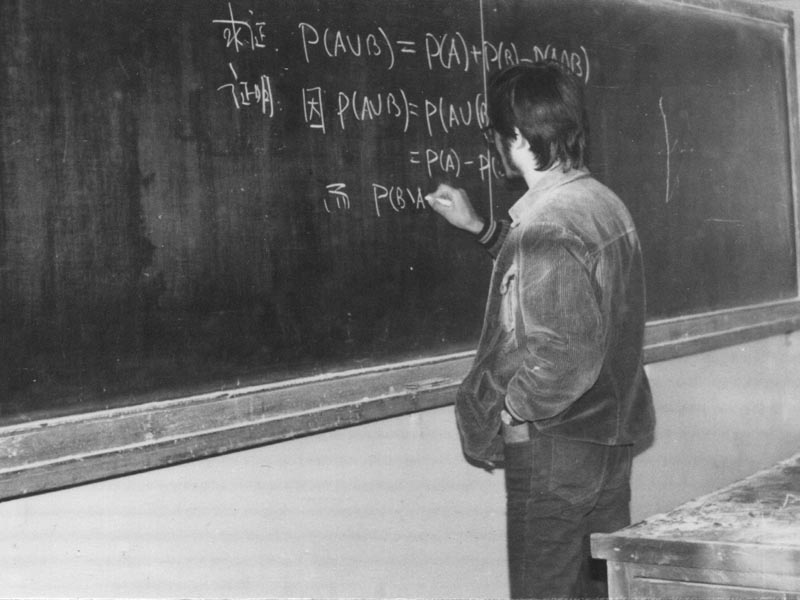 求证. P(A∪B)=P(A)+P(B)-P(A∩B)
证明. 因 P(A∪B)=P(A∪(B
=P(A)-P(
而 P(B\A